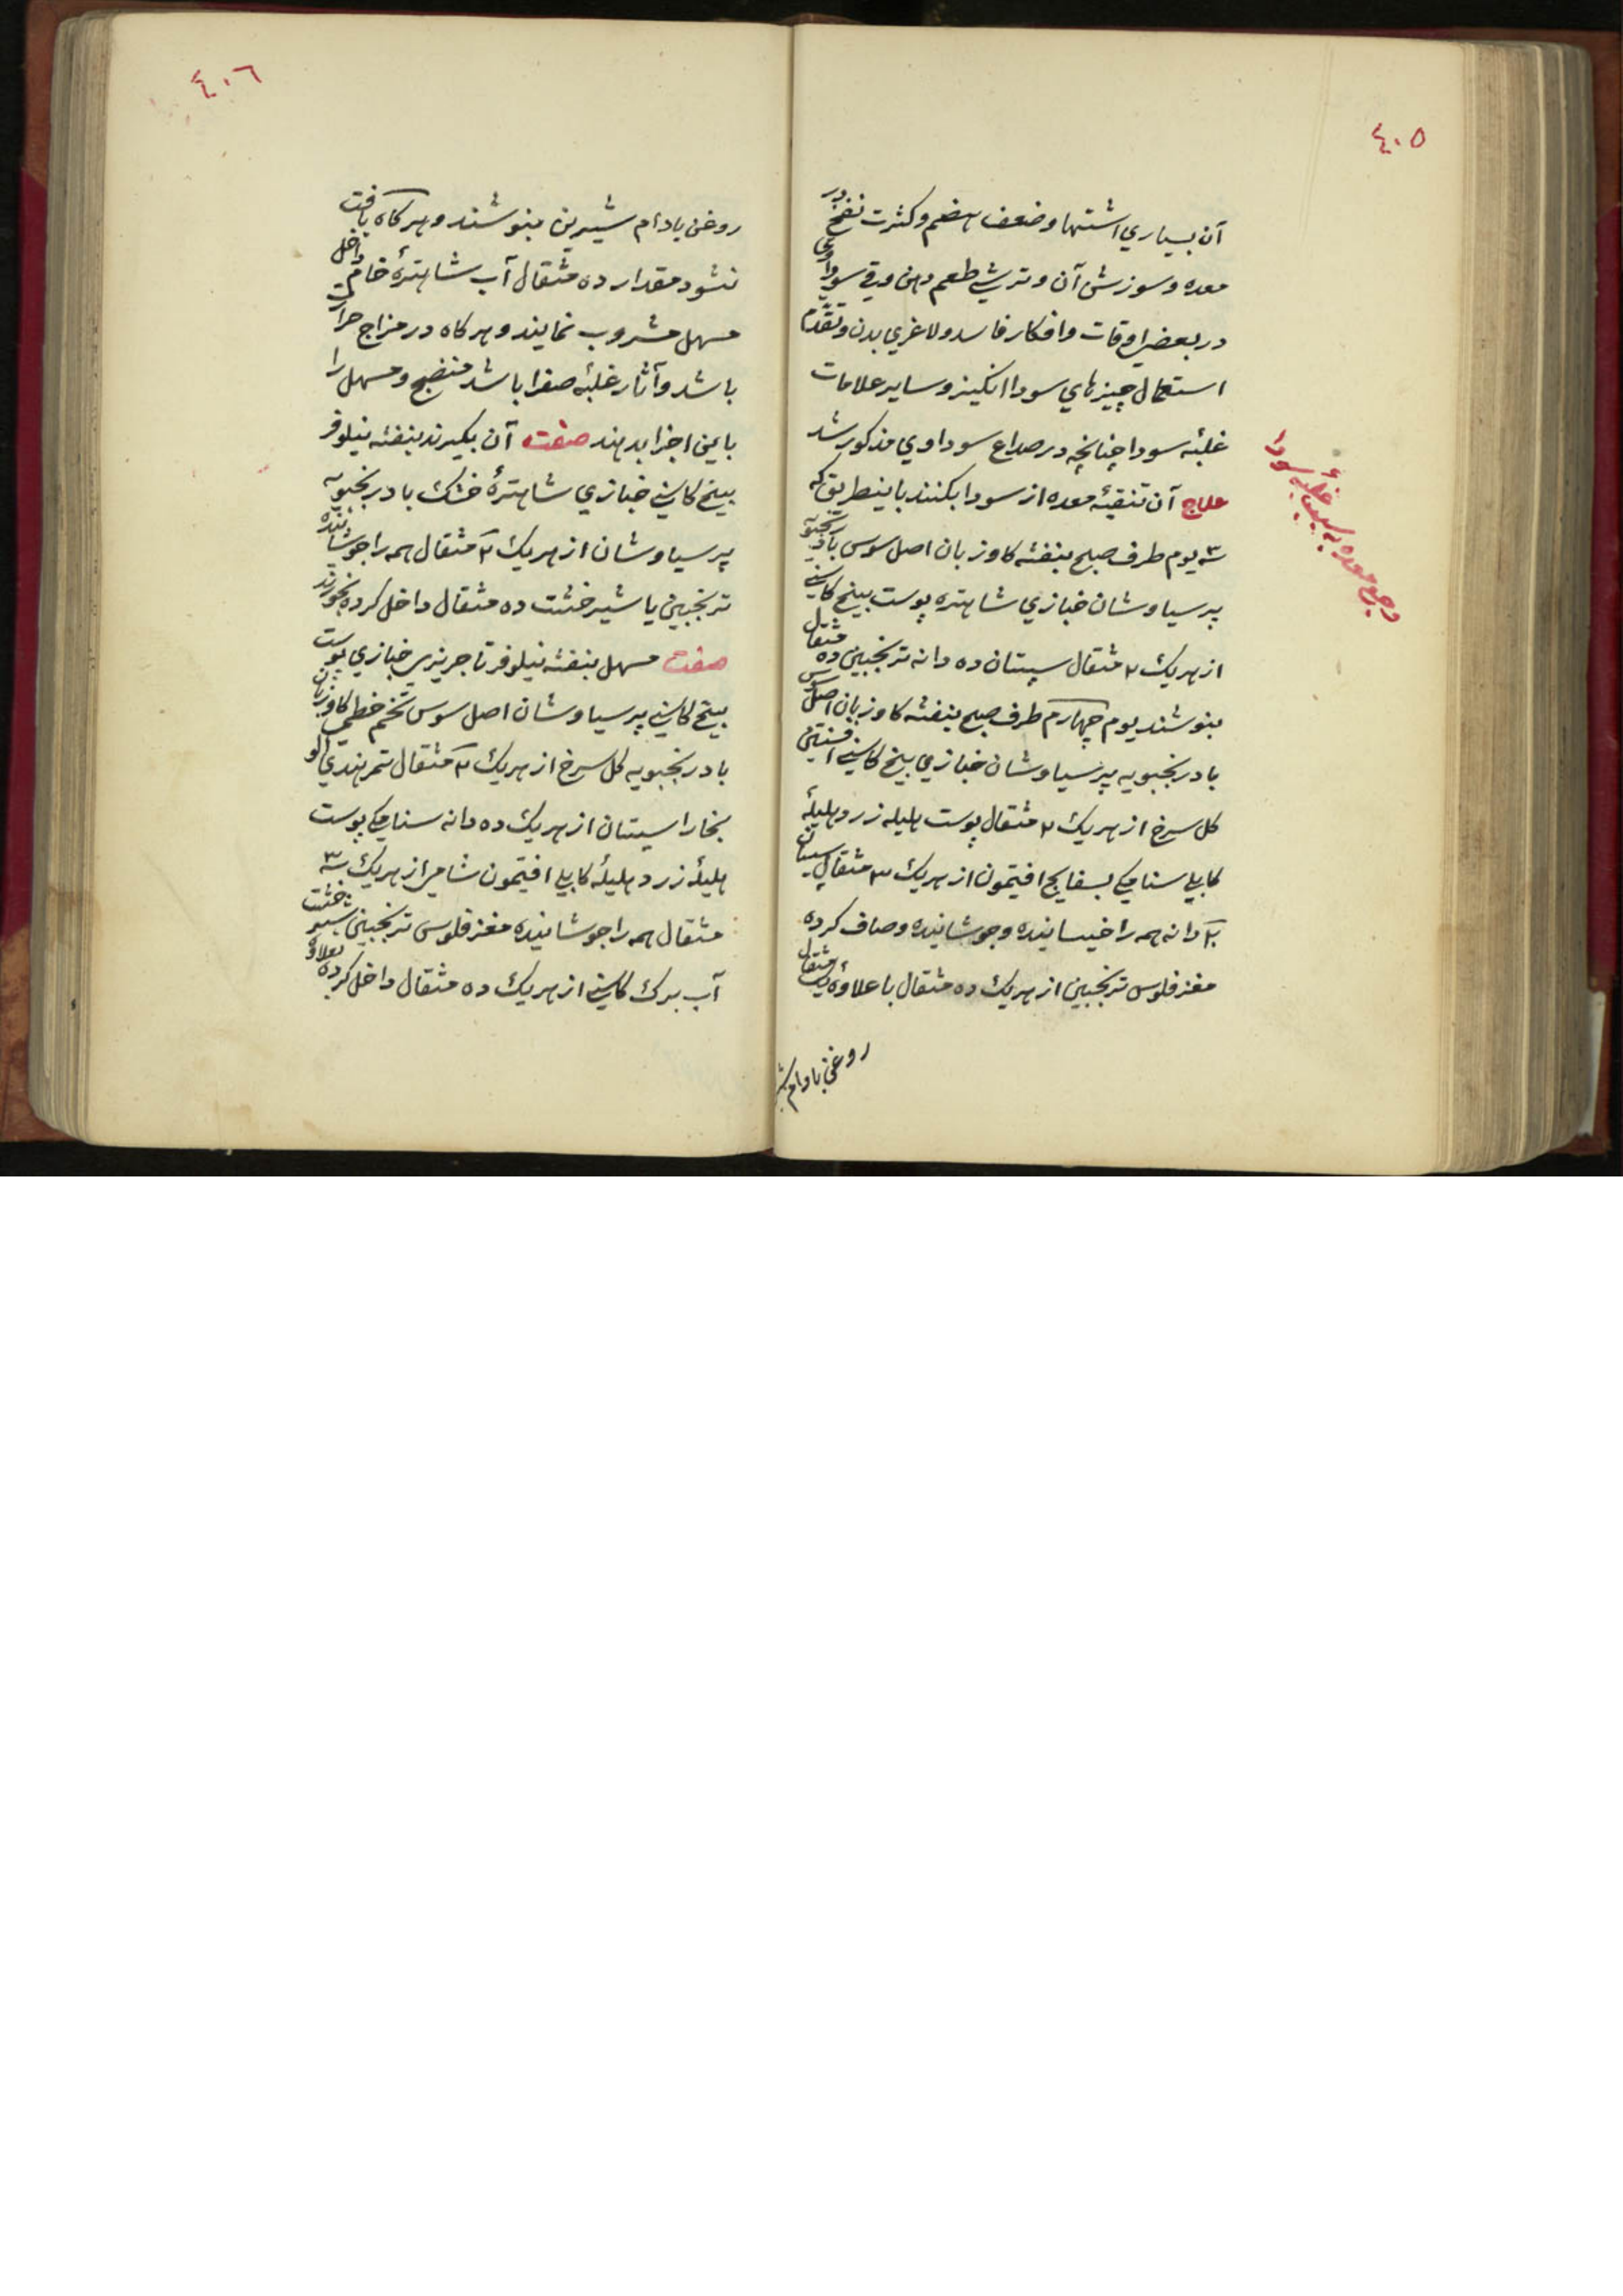 ٤٠٥
آن بسیاري اشتها و ضعف هضم و کثرت نفخ در
معده و سوزش آن و ترشي طعم دهن و قي سوداوی
در بعضي اوقات و افکار فاسد و لاغري بدن و تقدّم
استعمال چیزهاي سودا انکیز و سایر علامات
غلبۀ سودا چنانچه در صداع سوداوي مذکور شد
علاج آن تنقیۀ معده از سودا بکنند باینطریق که
۳ یوم طرف صبح بنفشه کاوزبان اصل سوس بادرنجبویه
پرسیاوشان خبازي شاهتره پوست بیخ کاسني
از هریک ۲ مثقال سپستان ده دانه ترنجبین ده مثقال
بنوشند یوم چهارم طرف صبح بنفشه کاوزبان اصل سوس
بادرنجبویه پرسیاوشان خبازي بیخ کاسني افسنتین
کل سرخ از هریک ۲ مثقال پوست هلیله زرد هلیلۀ
کابلي سنامکي بسفایج افتیمون از هریک ۳ مثقال سپستان
۲۰ دانه همه را خیسانیده و جوشانیده و صاف کرده
مغز فلوس ترنجبین از هریک ده مثقال با علاوۀ یک مثقال
روغن بادام
وجع معده بسبب غلبۀ سودا
٤٠٦
روغن بادام شیرین بنوشند و هر کاه یافت
نشود مقدار ده مثقال آب شاهترۀ خام داخل
مسهل مشروب نمایند و هر کاه در مزاج حرارت
باشد و آثار غلبۀ صفرا باشد منضج و مسهل را
باین اجزا بدهند صفت آن بکیرند بنفشه نیلوفر
بیخ کاسني خبازي شاهترۀ خشک بادرنجبویه
پرسیاوشان از هریک ۲ مثقال همه را جوشانیده
ترنجبین یا شیرخشت ده مثقال داخل کرده بخورند
صفت مسهل بنفشه نیلوفر تاجریزي خبازي پوست
بیخ کاسني پرسیاوشان اصل سوس تخم خطمي کاوزبان
بادرنجبویه کل سرخ از هریک ۲ مثقال تمر هندي الو
بخارا سپستان از هریک ده دانه سنامکي پوست
هلیلۀ زرد هلیلۀ کابلي افتیمون شامي از هریک ۳
مثقال همه را جوشانیده مغز فلوس ترنجبین شیرخشت
آب برک کاسني از هریک ده مثقال داخل کرده بعلاوۀ